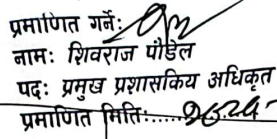 प्रमाणित गर्नेः
नामः शिवराज पौडेल
पदः प्रमुख प्रशासकिय अधिकृत
प्रमाणित मितिः......